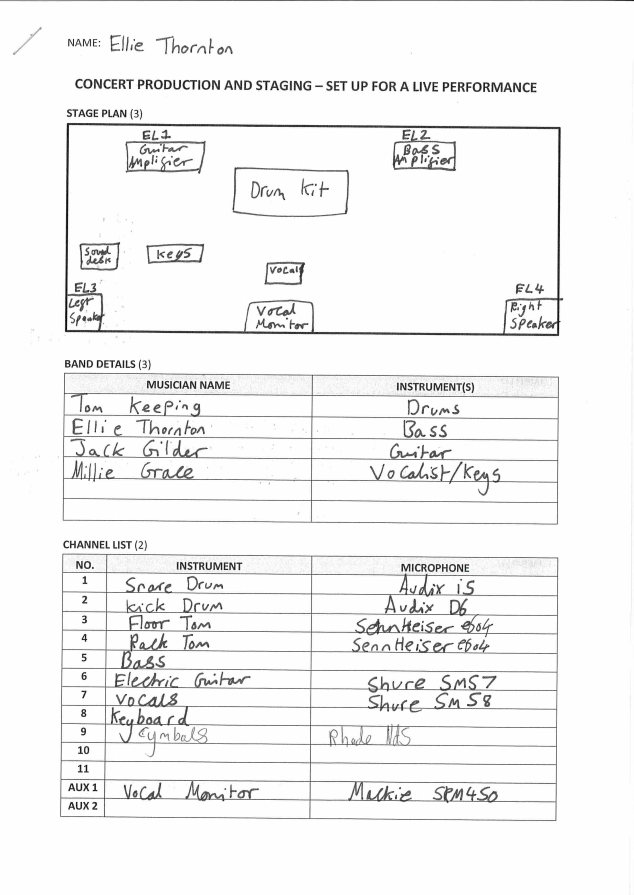 NAME: Ellie Thornton
CONCERT PRODUCTION AND STAGING – SET UP FOR A LIVE PERFORMANCE
STAGE PLAN (3)
EL1
Guitar
Amplifier
EL2
Bass
Amplifier
Drum Kit
Sound
desk
Keys
Vocals
EL3
Left
Speaker
Vocal
Monitor
EL4
Right
Speaker
BAND DETAILS (3)
MUSICIAN NAME INSTRUMENT(S)
Tom Keeping Drums
Ellie Thornton Bass
Jack Gilder Guitar
Millie Grace Vocalist/Keys
CHANNEL LIST (2)
NO. INSTRUMENT MICROPHONE
1 Snare Drum Audix i5
2 Kick Drum Audix D6
3 Floor Tom Sennheiser e604
4 Rack Tom SennHeiser e604
5 Bass
6 Electric Guitar Shure SM57
7 Vocals Shure SM58
8 Keyboard
9 Cymbals Rhode Nt5
10
11
AUX 1 Vocal Monitor Mackie SRM450
AUX 2